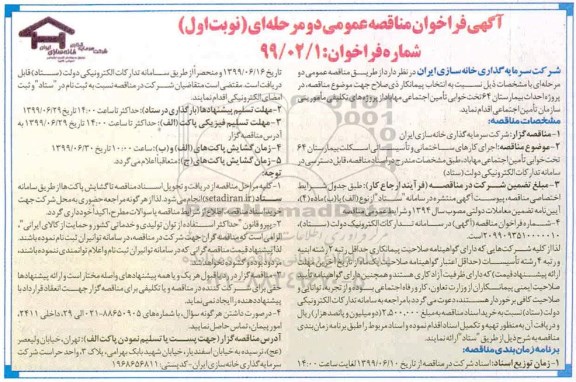 آگهی فراخوان مناقصه عمومی دو مرحله‌ای (نوبت اول)
شماره فراخوان: ۹۹/۰۲/۱
شرکت سرمایه گذاری خانه سازی ایران
شرکت سرمایه گذاری خانه سازی ایران در نظر دارد از طریق مناقصه عمومی دو
مرحله‌ای با مشخصات ذیل نسبت به انتخاب پیمانکار ذی صلاح جهت موضوع مناقصه، در
پروژه احداث بیمارستان ۶۴ تخت‌خوابی تأمین اجتماعی مهاباد از پروژه‌های تکلیفی مأموریتی
سازمان تأمین اجتماعی اقدام نماید.
مشخصات مناقصه:
۱- مناقصه گزار: شرکت سرمایه گذاری خانه سازی ایران
۲- موضوع مناقصه: اجرای کارهای ساختمانی و تأسیساتی اسکلت بیمارستان ۶۴
تخت‌خوابی تأمین اجتماعی مهاباد، طبق مشخصات مندرج در اسناد مناقصه، قابل دسترسی در
سامانه تدارکات الکترونیکی دولت (ستاد)
۳- مبلغ تضمین شرکت در مناقصه (فرآیند ارجاع کار): طبق جدول شرایط
اختصاصی مناقصه، پیوست آگهی منتشره در سامانه "ستاد" از نوع (الف) یا (ب) ماده (۴)،
آیین‌نامه تضمین معاملات دولتی مصوب سال ۱۳۹۴ و شرایط اسناد مناقصه
۴- شماره فراخوان مناقصه (آگهی) در سامانه تدارکات الکترونیکی دولت (ستاد):
لذا از کلیه شرکت‌هایی که دارای گواهینامه صلاحیت پیمانکاری حداقل رتبه ۲ رشته ابنیه
و رتبه ۴ رشته تأسیسات (حداقل اعتبار گواهینامه صلاحیت یک ماه از تاریخ آخرین مهلت
ارائه پیشنهاد قیمت) که دارای ظرفیت آزاد کاری هستند و همچنین دارای گواهینامه تأیید
صلاحیت ایمنی پیمانکاران از وزارت تعاون، کار و رفاه اجتماعی بوده و از تجربه، توانایی و
صلاحیت کافی برخوردار هستند، دعوت می‌گردد با مراجعه به سامانه تدارکات الکترونیکی
دولت (ستاد) نسبت به خرید اسناد مناقصه به مبلغ ۲,۵۰۰,۰۰۰ (دو میلیون و پانصد هزار) ریال
و دریافت آن به‌منظور تهیه و تکمیل اسناد اقدام نموده و اسناد مربوط را طبق برنامه زمان‌بندی
مناقصه به شرح ذیل از طریق "ستاد" ارائه نمایند.
برنامه زمان‌بندی مناقصه:
۱- زمان توزیع اسناد: اسناد شرکت در مناقصه از تاریخ ۱۳۹۹/۰۶/۱۰ لغایت ساعت ۱۴:۰۰
تاریخ ۱۳۹۹/۰۶/۱۶ و منحصراً از طریق سامانه تدارکات الکترونیکی دولت (ستاد) قابل
دریافت است. مقتضی است متقاضیان شرکت در مناقصه نسبت به ثبت نام در "ستاد" و ثبت
امضای الکترونیکی اقدام نمایند.
۲- مهلت تسلیم پیشنهادها (بارگذاری در ستاد): حداکثر تا ساعت ۱۴:۰۰ تاریخ ۱۳۹۹/۰۶/۲۹
۳- مهلت تسلیم فیزیکی پاکت (الف): حداکثر تا ساعت ۱۴:۰۰ تاریخ ۱۳۹۹/۰۶/۲۹ به
آدرس مناقصه گزار
۴- زمان گشایش پاکت‌های (الف) و (ب): ساعت ۱۰:۰۰ تاریخ ۱۳۹۹/۰۶/۳۰
۵- زمان گشایش پاکت‌های (ج): متعاقباً اعلام می‌گردد.
توجه:
۱- کلیه مراحل مناقصه از دریافت و تحویل اسناد مناقصه تا گشایش پاکت‌ها از طریق سامانه
ستاد (setadiran.ir) انجام می‌شود. لذا از هرگونه مراجعه حضوری به محل شرکت جهت
اکیداً خودداری گردد.
۲- پیرو قانون "حداکثر استفاده از توان تولیدی و خدماتی کشور و حمایت از کالای ایرانی"،
الزامی است که مناقصه گران جهت شرکت در مناقصه، در سامانه توانیران ثبت نام نموده باشند.
لذا پیشنهاد قیمت مناقصه گرانی که در سامانه توانیران ثبت نام و اعلام توانمندی ننموده باشند،
مردود بوده و گشوده نخواهد شد.
۳- مناقصه گزار در رد یا قبول هر یک و یا همه پیشنهادهای واصله مختار است و ارائه پیشنهادها
حقی برای شرکت کننده در مناقصه و یا تکلیفی برای مناقصه گزار جهت انعقاد قرارداد با
پیشنهاددهنده را ایجاد نمی‌نماید.
۴- در صورت داشتن هرگونه سؤال، با شماره‌های ۸۸۶۵۰۹۰۵-۰۲۱ داخلی ۲۹ و ۲۴۱۱،
امور پیمان، تماس حاصل نمایید.
آدرس مناقصه گزار (جهت پست یا تسلیم نمودن پاکت الف): تهران، خیابان ولیعصر
(عج)، نرسیده به خیابان اسفندیار، خیابان شهید بابک بهرامی، پلاک ۳، واحد حراست شرکت
سرمایه گذاری خانه سازی ایران - کد پستی: ۱۹۶۸۶۵۶۸۱۱